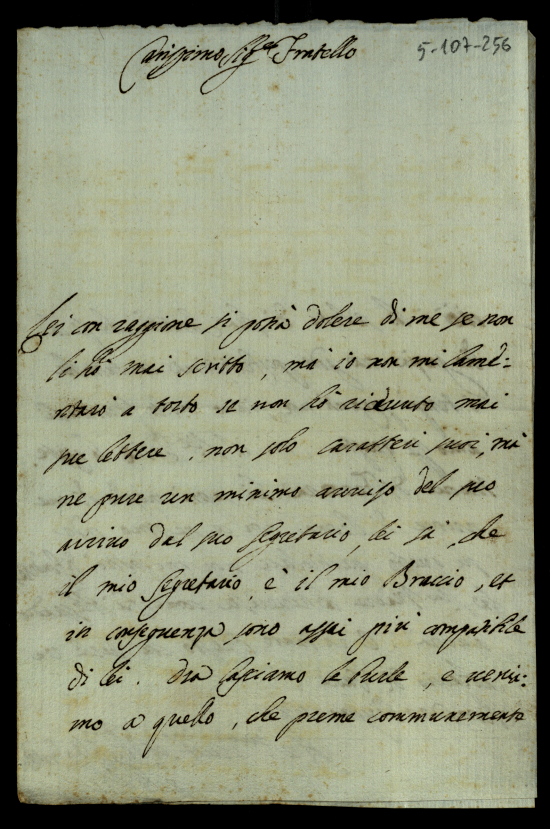 Carissimo Sig.re Fratello
5-107-256
Lei con raggione si potrà dolere di me se non
li hò mai scritto, mà io non mi lamē-
ntarò a torto se non hò riceuuto mai
sue lettere, non solo caratteri suoi, mà
ne pure un minimo auuiso del suo
arriuo dal suo segretario, lei sà, che
il mio segretario è il mio Braccio, et
in conseguenza sono assai più compatibile
di lei. Ora lasciamo le burle, e ueni:
mo a quello, che preme communemente